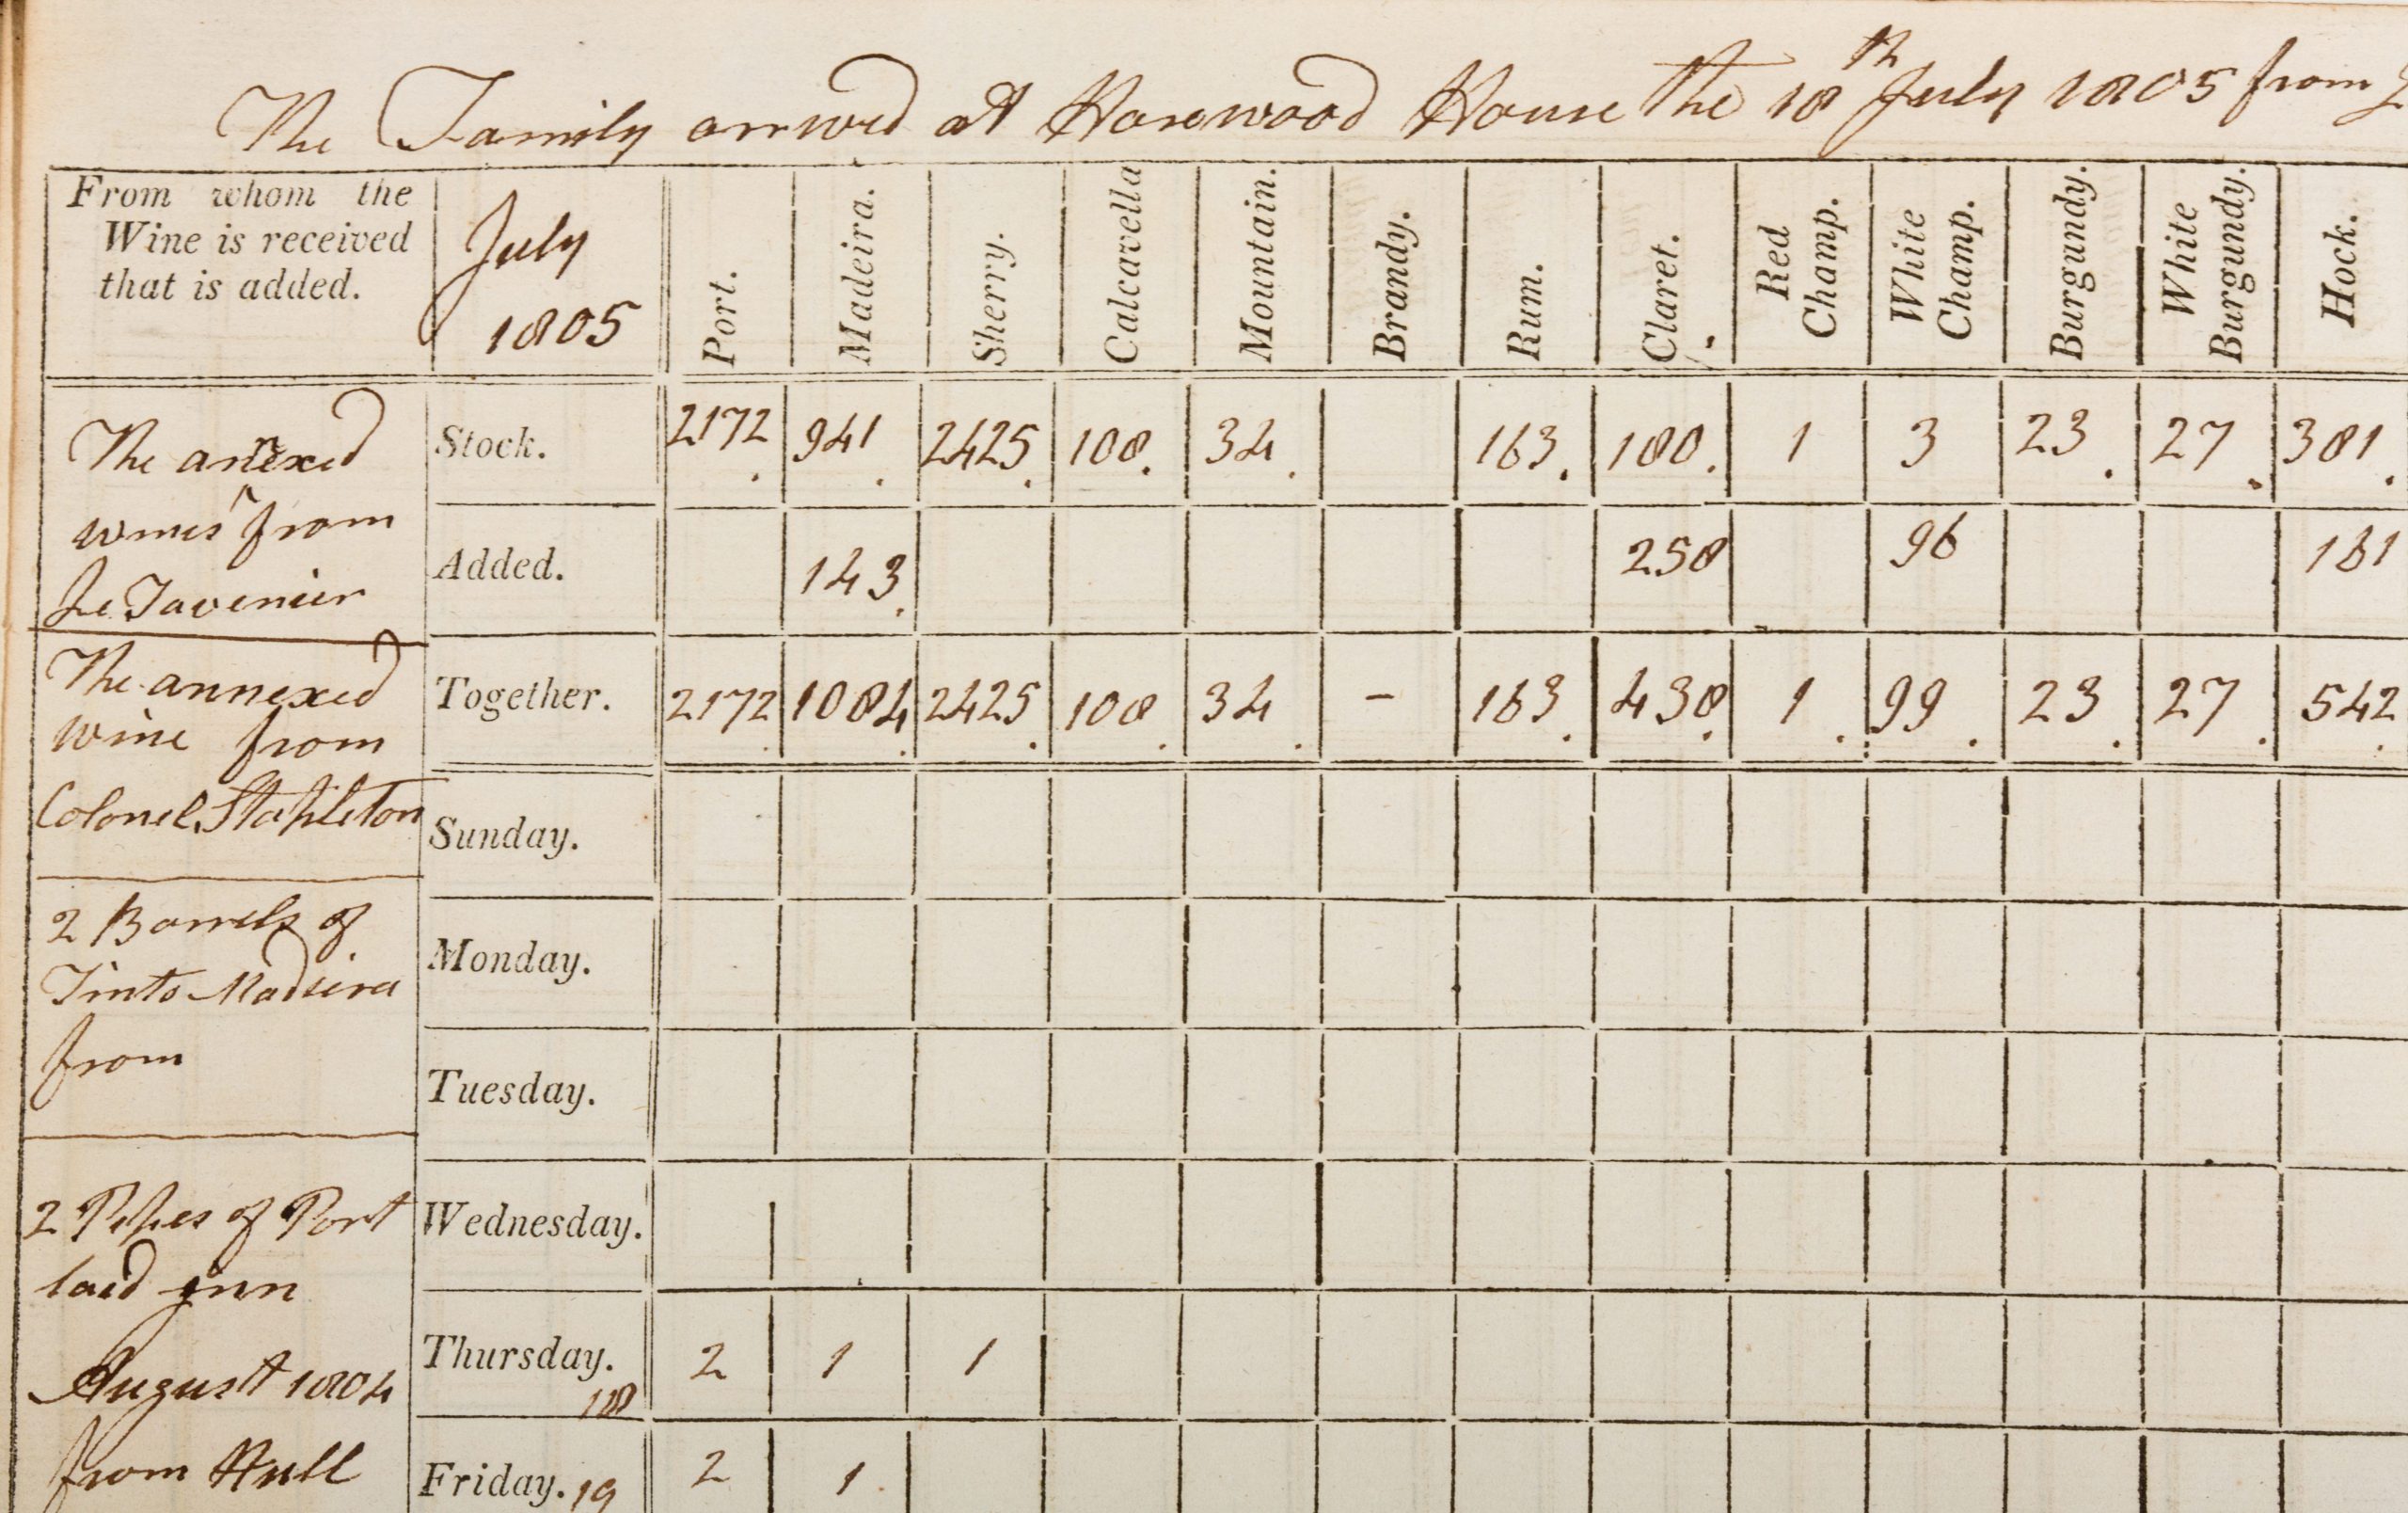 The Family arrived at Harewood House the 18th July 1805 from
From whom the
Wine is received
that is added.
July
1805
Port.
Madeira.
Sherry.
Calcavella
Mountain.
Brandy.
Rum.
Claret.
Red
Champ.
White
Champ.
Burgundy.
White
Burgundy.
Hock.
The annexed
wines from
Le Tavernier
Stock. 2172 941 2425 108 34 163 180 1 3 23 27 381
Added. 143 258 96 161
The annexed
wine from
Colonel Stapleton
Together. 2172 1084 2425 108 34 - 163 438 1 99 23 27 542
Sunday.
2 Barrels of
Tinto Madeira
from
Monday.
Tuesday.
2 Pipes of Port
laid inn
August 1804
from Hull
Wednesday.
Thursday. 18 2 1 1
Friday. 19 2 1